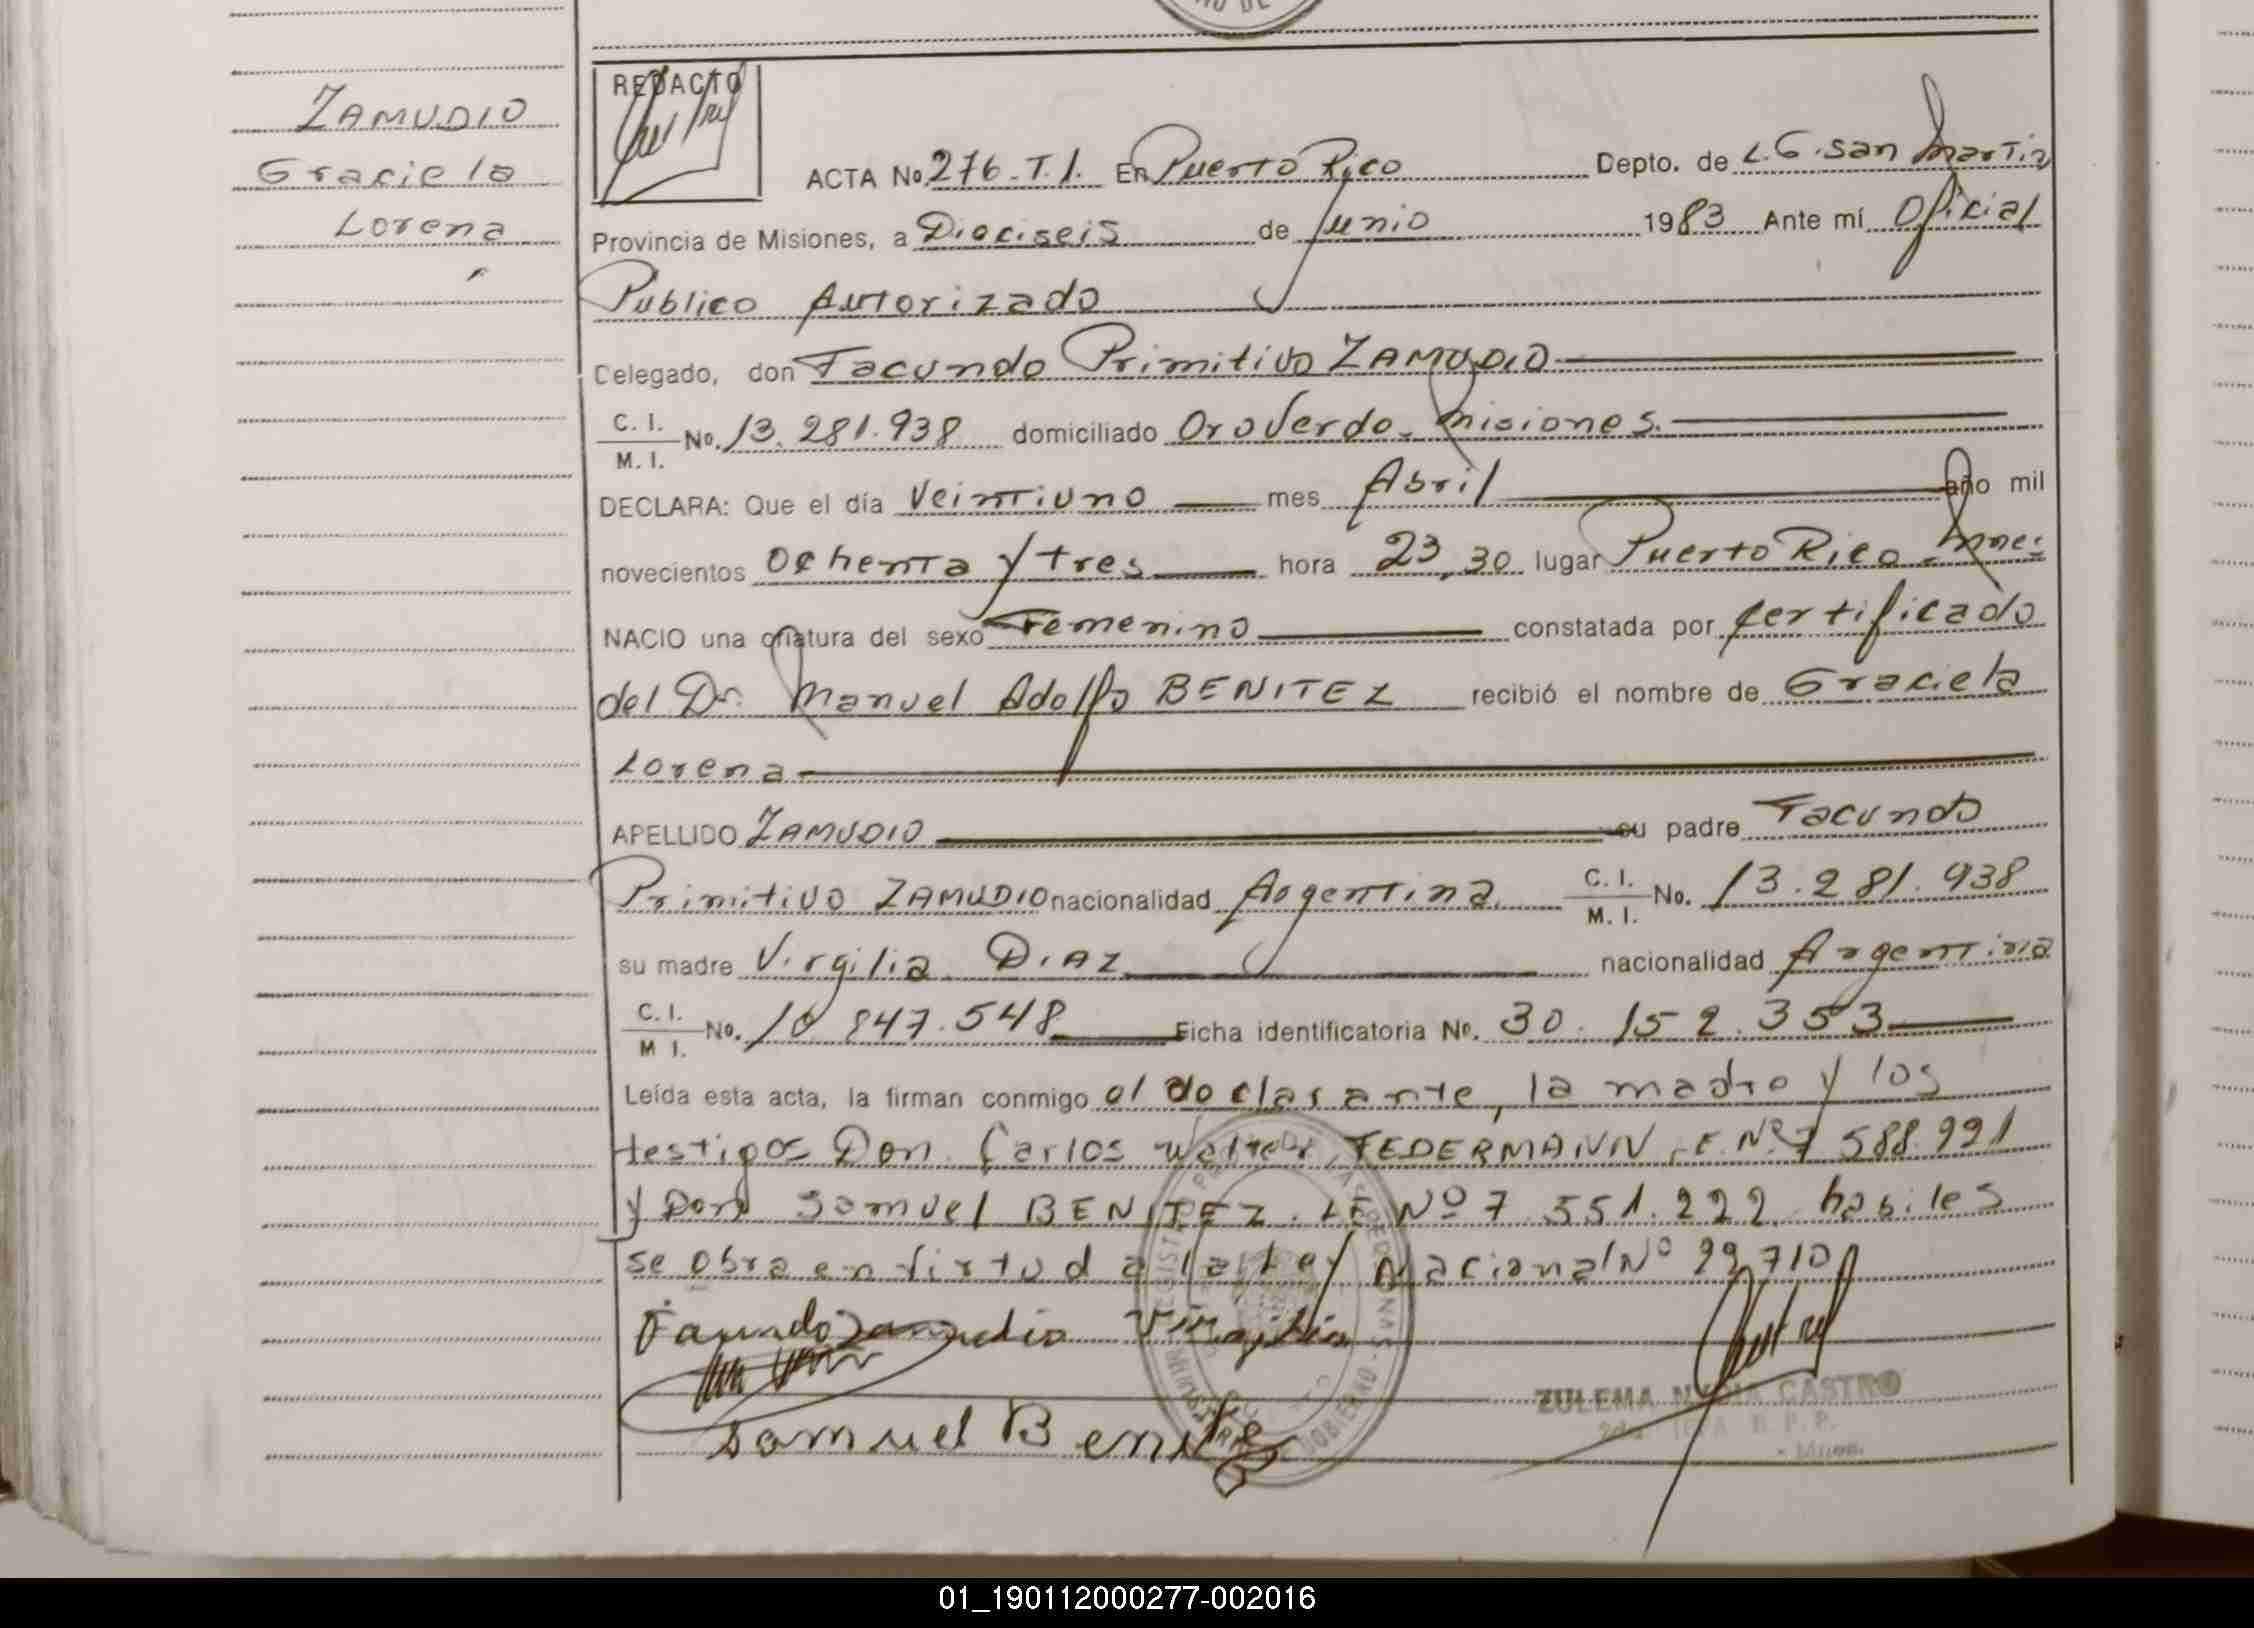 ZAMUDIO
Graciela
Lorena
REDACTO
ACTA No. 276-T.I. En Puerto Rico Depto. de L.G. San Martin
Provincia de Misiones, a Dieciseis de Junio 1983 Ante mí Oficial
Publico Autorizado
Celegado, don Facundo Primitivo ZAMUDIO
C. I.
M. I.
No. 13.281.938 domiciliado Oro Verde - Misiones.
DECLARA: Que el día Veintiuno mes Abril año mil
novecientos Ochenta y tres hora 23,30 lugar Puerto Rico - Mnes.
NACIO una criatura del sexo Femenino constatada por certificado
del Dr. Manuel Adolfo BENITEZ recibió el nombre de Graciela
Lorena
APELLIDO ZAMUDIO su padre Facundo
Primitivo ZAMUDIO nacionalidad Argentina C. I. M. I. No. 13.281.938
su madre Virgilia DIAZ nacionalidad Argentina
C. I. M I. No. 10 847.548 Ficha identificatoria No. 30.152.353
Leída esta acta, la firman conmigo el declarante, la madre y los
testigos Don Carlos Walter FEDERMANN, E. Nº 7 588.991
y Don Samuel BENITEZ. LE Nº 7 551.222 habiles
se obra en Virtud a la Ley Nacional Nº 22.710
Facundo Zamudio Virgilia
Samuel Benitez
ZULEMA NADIA CASTRO
R. P. P.
- Mnes.
01_190112000277-002016